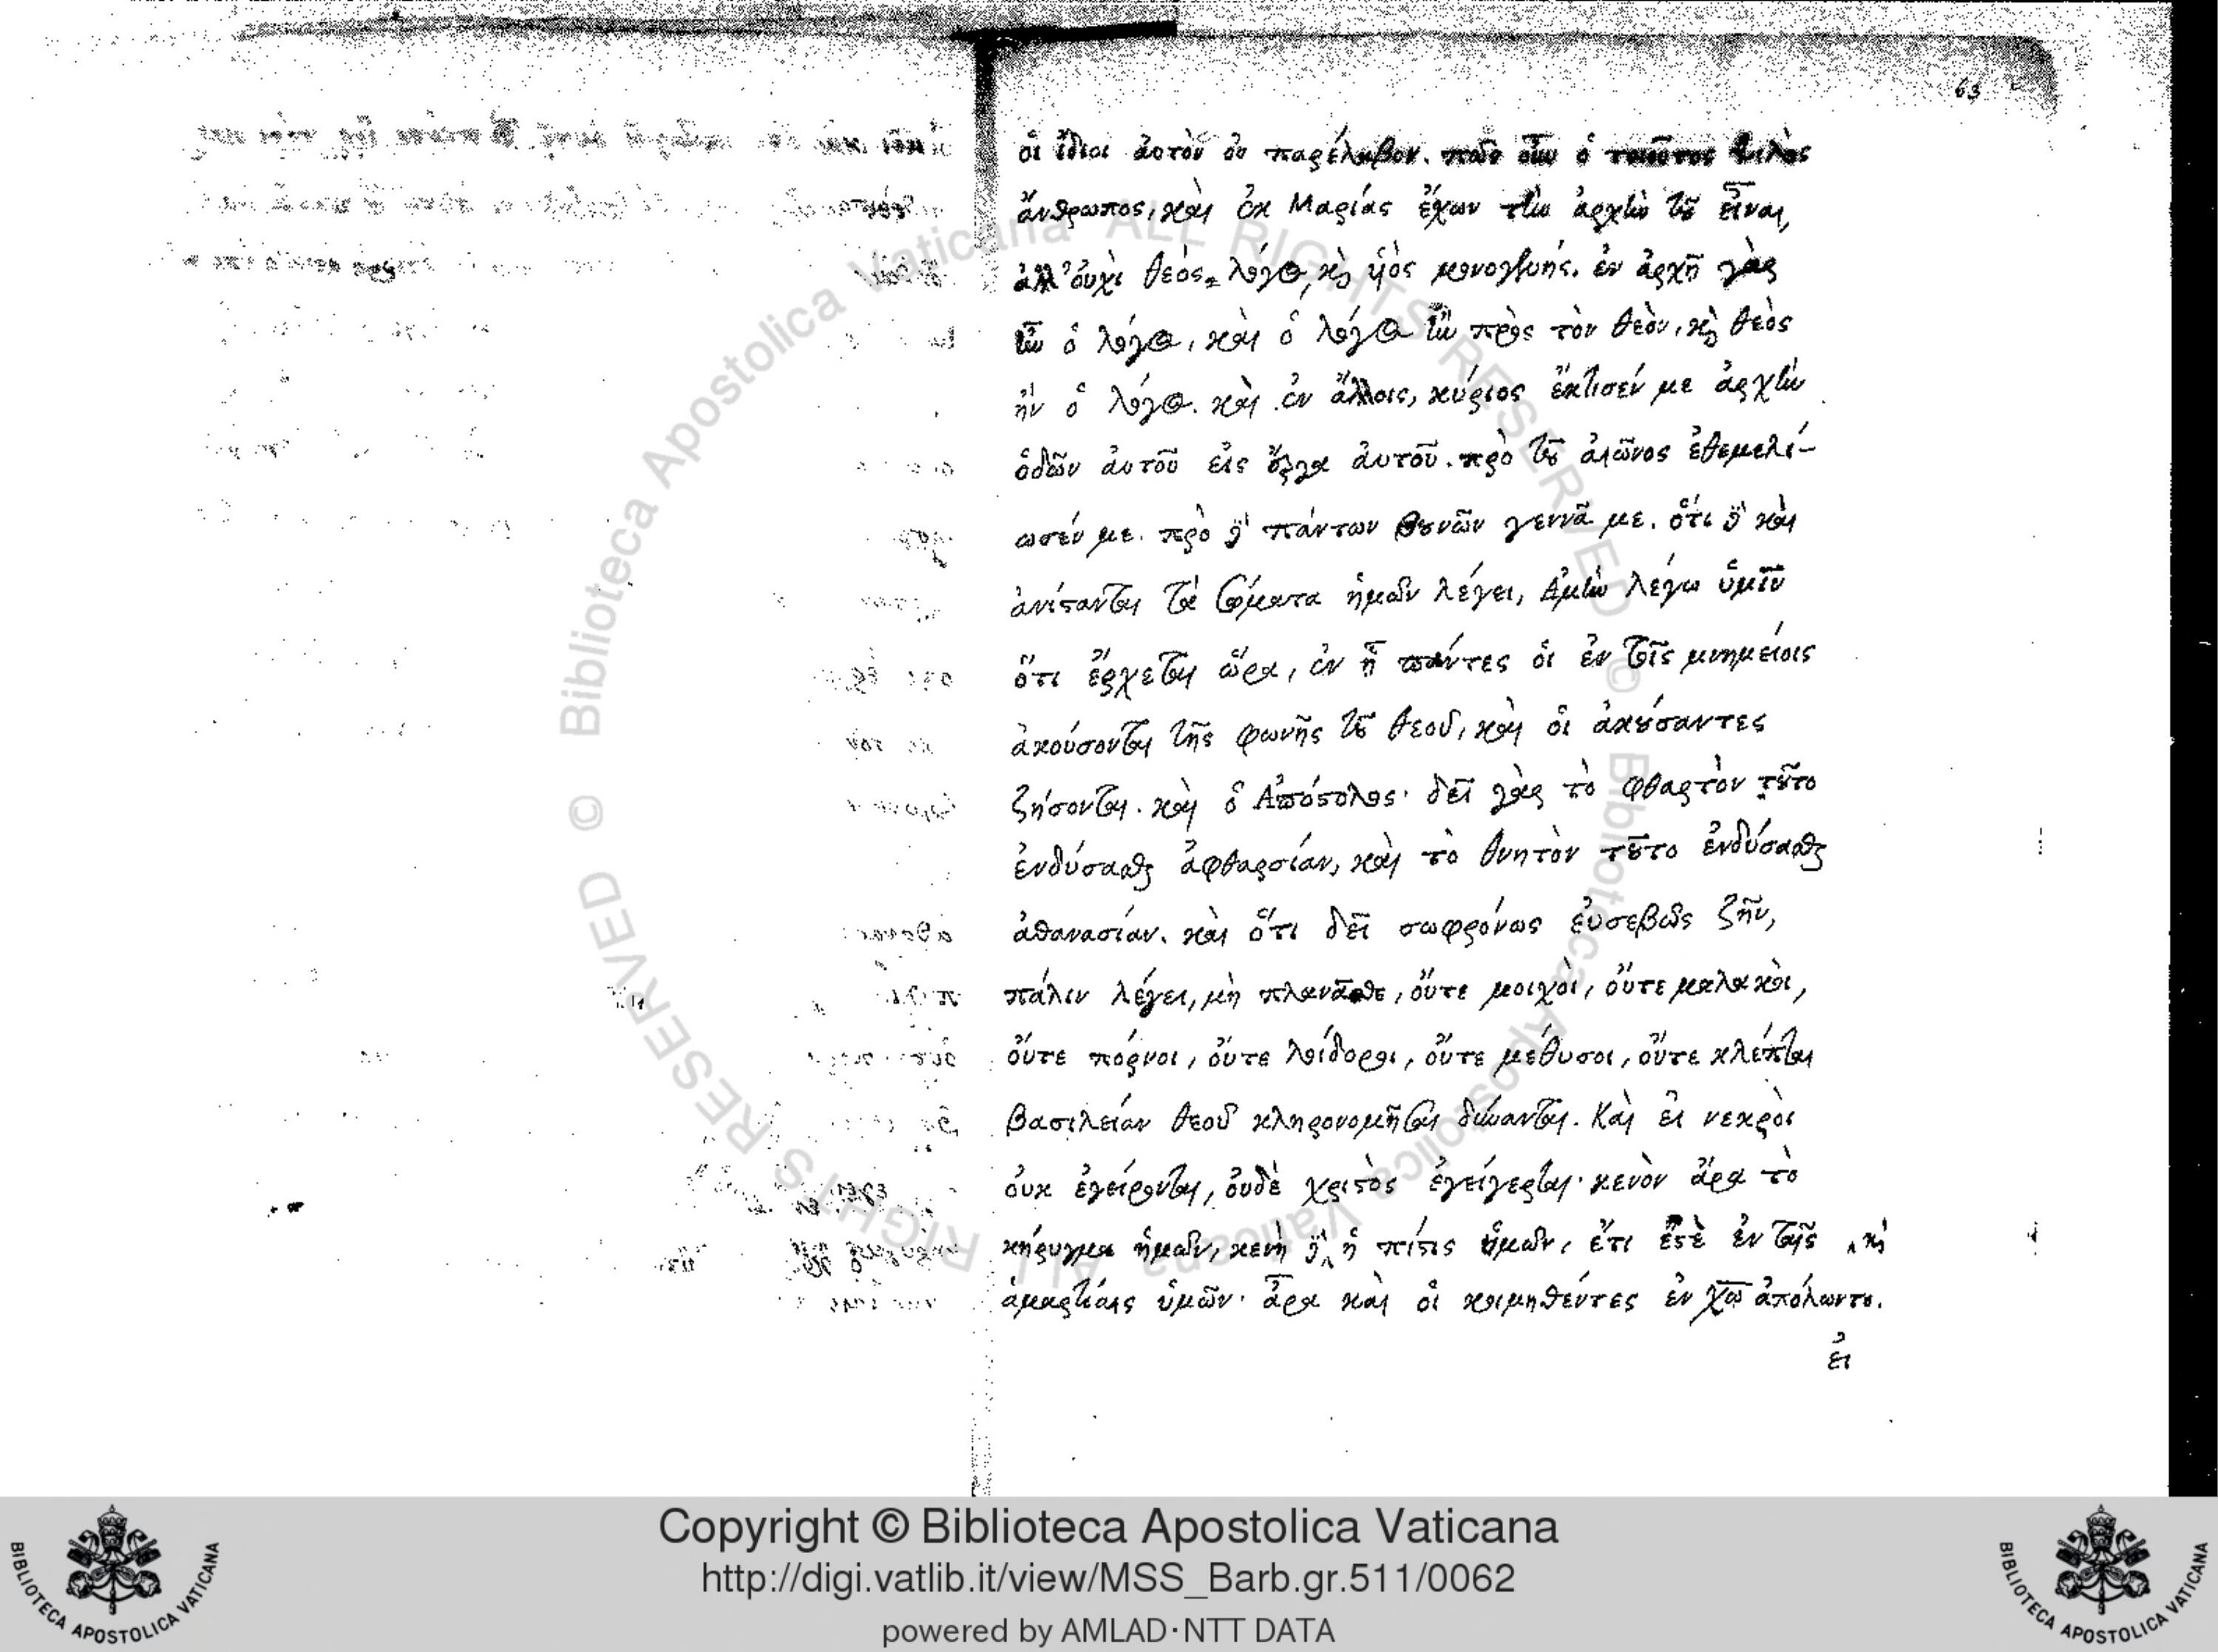 63
οἱ ἴδιοι ἀυτὸν ὀυ παρέλαβον. πῶς οὖν ὁ τοιοῦτος ψιλὸς
ἄνθρωπος, καὶ ἐκ Μαρίας ἔχων τὴν ἀρχὴν τοῦ εἶναι,
ἀλλ' ὀυχὶ θεὸς, λόγος, καὶ ὑιὸς μονογενής. ἐν ἀρχῇ γὰρ
ἦν ὁ λόγος, καὶ ὁ λόγος ἦν πρὸς τὸν θεὸν, καὶ θεὸς
ἦν ὁ λόγος. καὶ ἐν ἄλλοις, κύριος ἔκτισέν με ἀρχὴν
ὁδῶν ἀυτοῦ εἰς ἔργα ἀυτοῦ. πρὸ τοῦ ἀιῶνος ἐθεμελί-
ωσέν με. πρὸ δὲ πάντων βουνῶν γεννᾷ με. ὅτι δὲ καὶ
ἀνίσταται τὰ σώματα ἡμῶν λέγει, Ἀμὴν λέγω ὑμῖν
ὅτι ἔρχεται ὥρα, ἐν ᾗ πάντες ὁι ἐν τοῖς μνημείοις
ἀκούσονται τῆς φωνῆς τοῦ θεοῦ, καὶ ὁι ἀκούσαντες
ζήσονται. καὶ ὁ Ἀπόστολος· δεῖ γὰρ τὸ φθαρτὸν τοῦτο
ἐνδύσασθαι ἀφθαρσίαν, καὶ τὸ θνητὸν τοῦτο ἐνδύσασθαι
ἀθανασίαν. καὶ ὅτι δεῖ σωφρόνως ἐυσεβῶς ζῆν,
πάλιν λέγει, μὴ πλανᾶσθε, ὄυτε μοιχοὶ, ὄυτε μαλακοὶ,
ὄυτε πόρνοι, ὄυτε λοίδοροι, ὄυτε μέθυσοι, ὄυτε κλέπται
βασιλείαν θεοῦ κληρονομῆσαι δύνανται. Καὶ ἐι νεκροὶ
ὀυκ ἐγείρονται, ὀυδὲ χριστὸς ἐγείγερται· κενὸν ἄρα τὸ
κήρυγμα ἡμῶν, κενὴ δὲ ‸ ἡ πίστις ὑμῶν, ἔτι ἐστὲ ἐν ταῖς ‸ καὶ
ἁμαρτίαις ὑμῶν· ἄρα καὶ ὁι κοιμηθέντες ἐν χω̅ ἀπόλωντο.
ἐι
© Biblioteca Apostolica Vaticana ALL RIGHTS RESERVED © Biblioteca Apostolica Vaticana ALL RIGHTS RESERVED
Copyright © Biblioteca Apostolica Vaticana
http://digi.vatlib.it/view/MSS_Barb.gr.511/0062
powered by AMLAD·NTT DATA
BIBLIOTECA APOSTOLICA VATICANA
BIBLIOTECA APOSTOLICA VATICANA